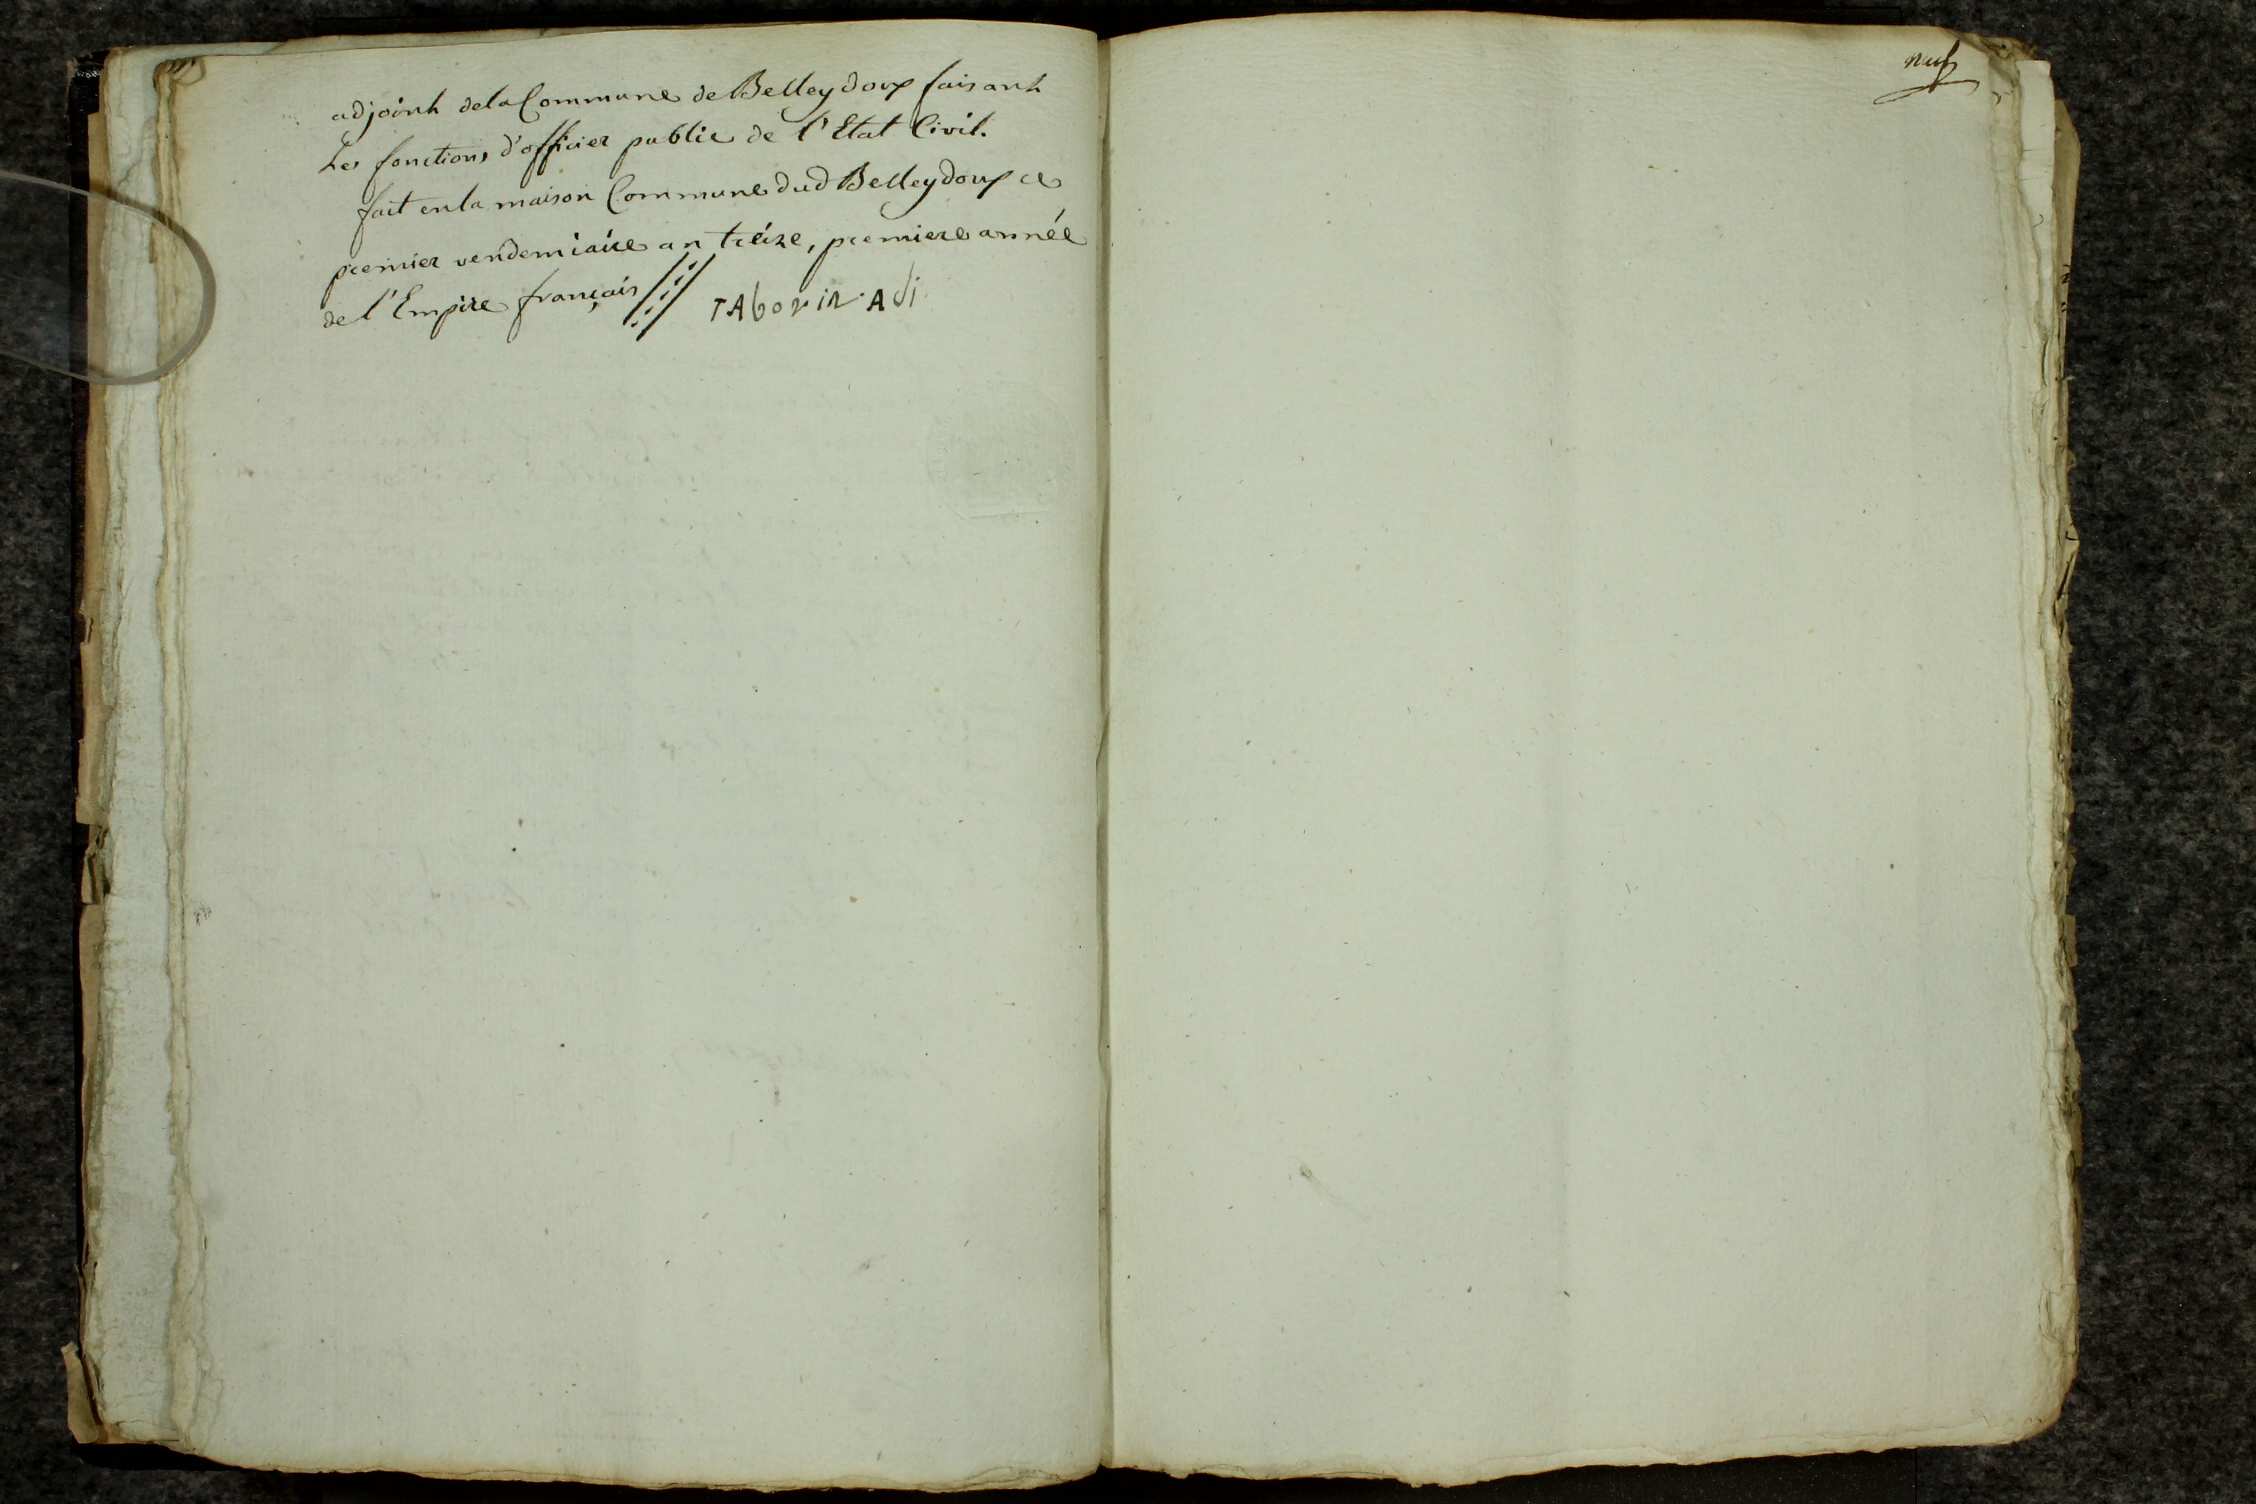 adjoint dela Commune de Belleydoux faisant
Les fonctions d'officier public de l'Etat Civil.
fait en la maison Commune dud Belleydoux ce
premier vendemiaire an treize, premiere année
de l'Empire français
TAborin Adj
neuf